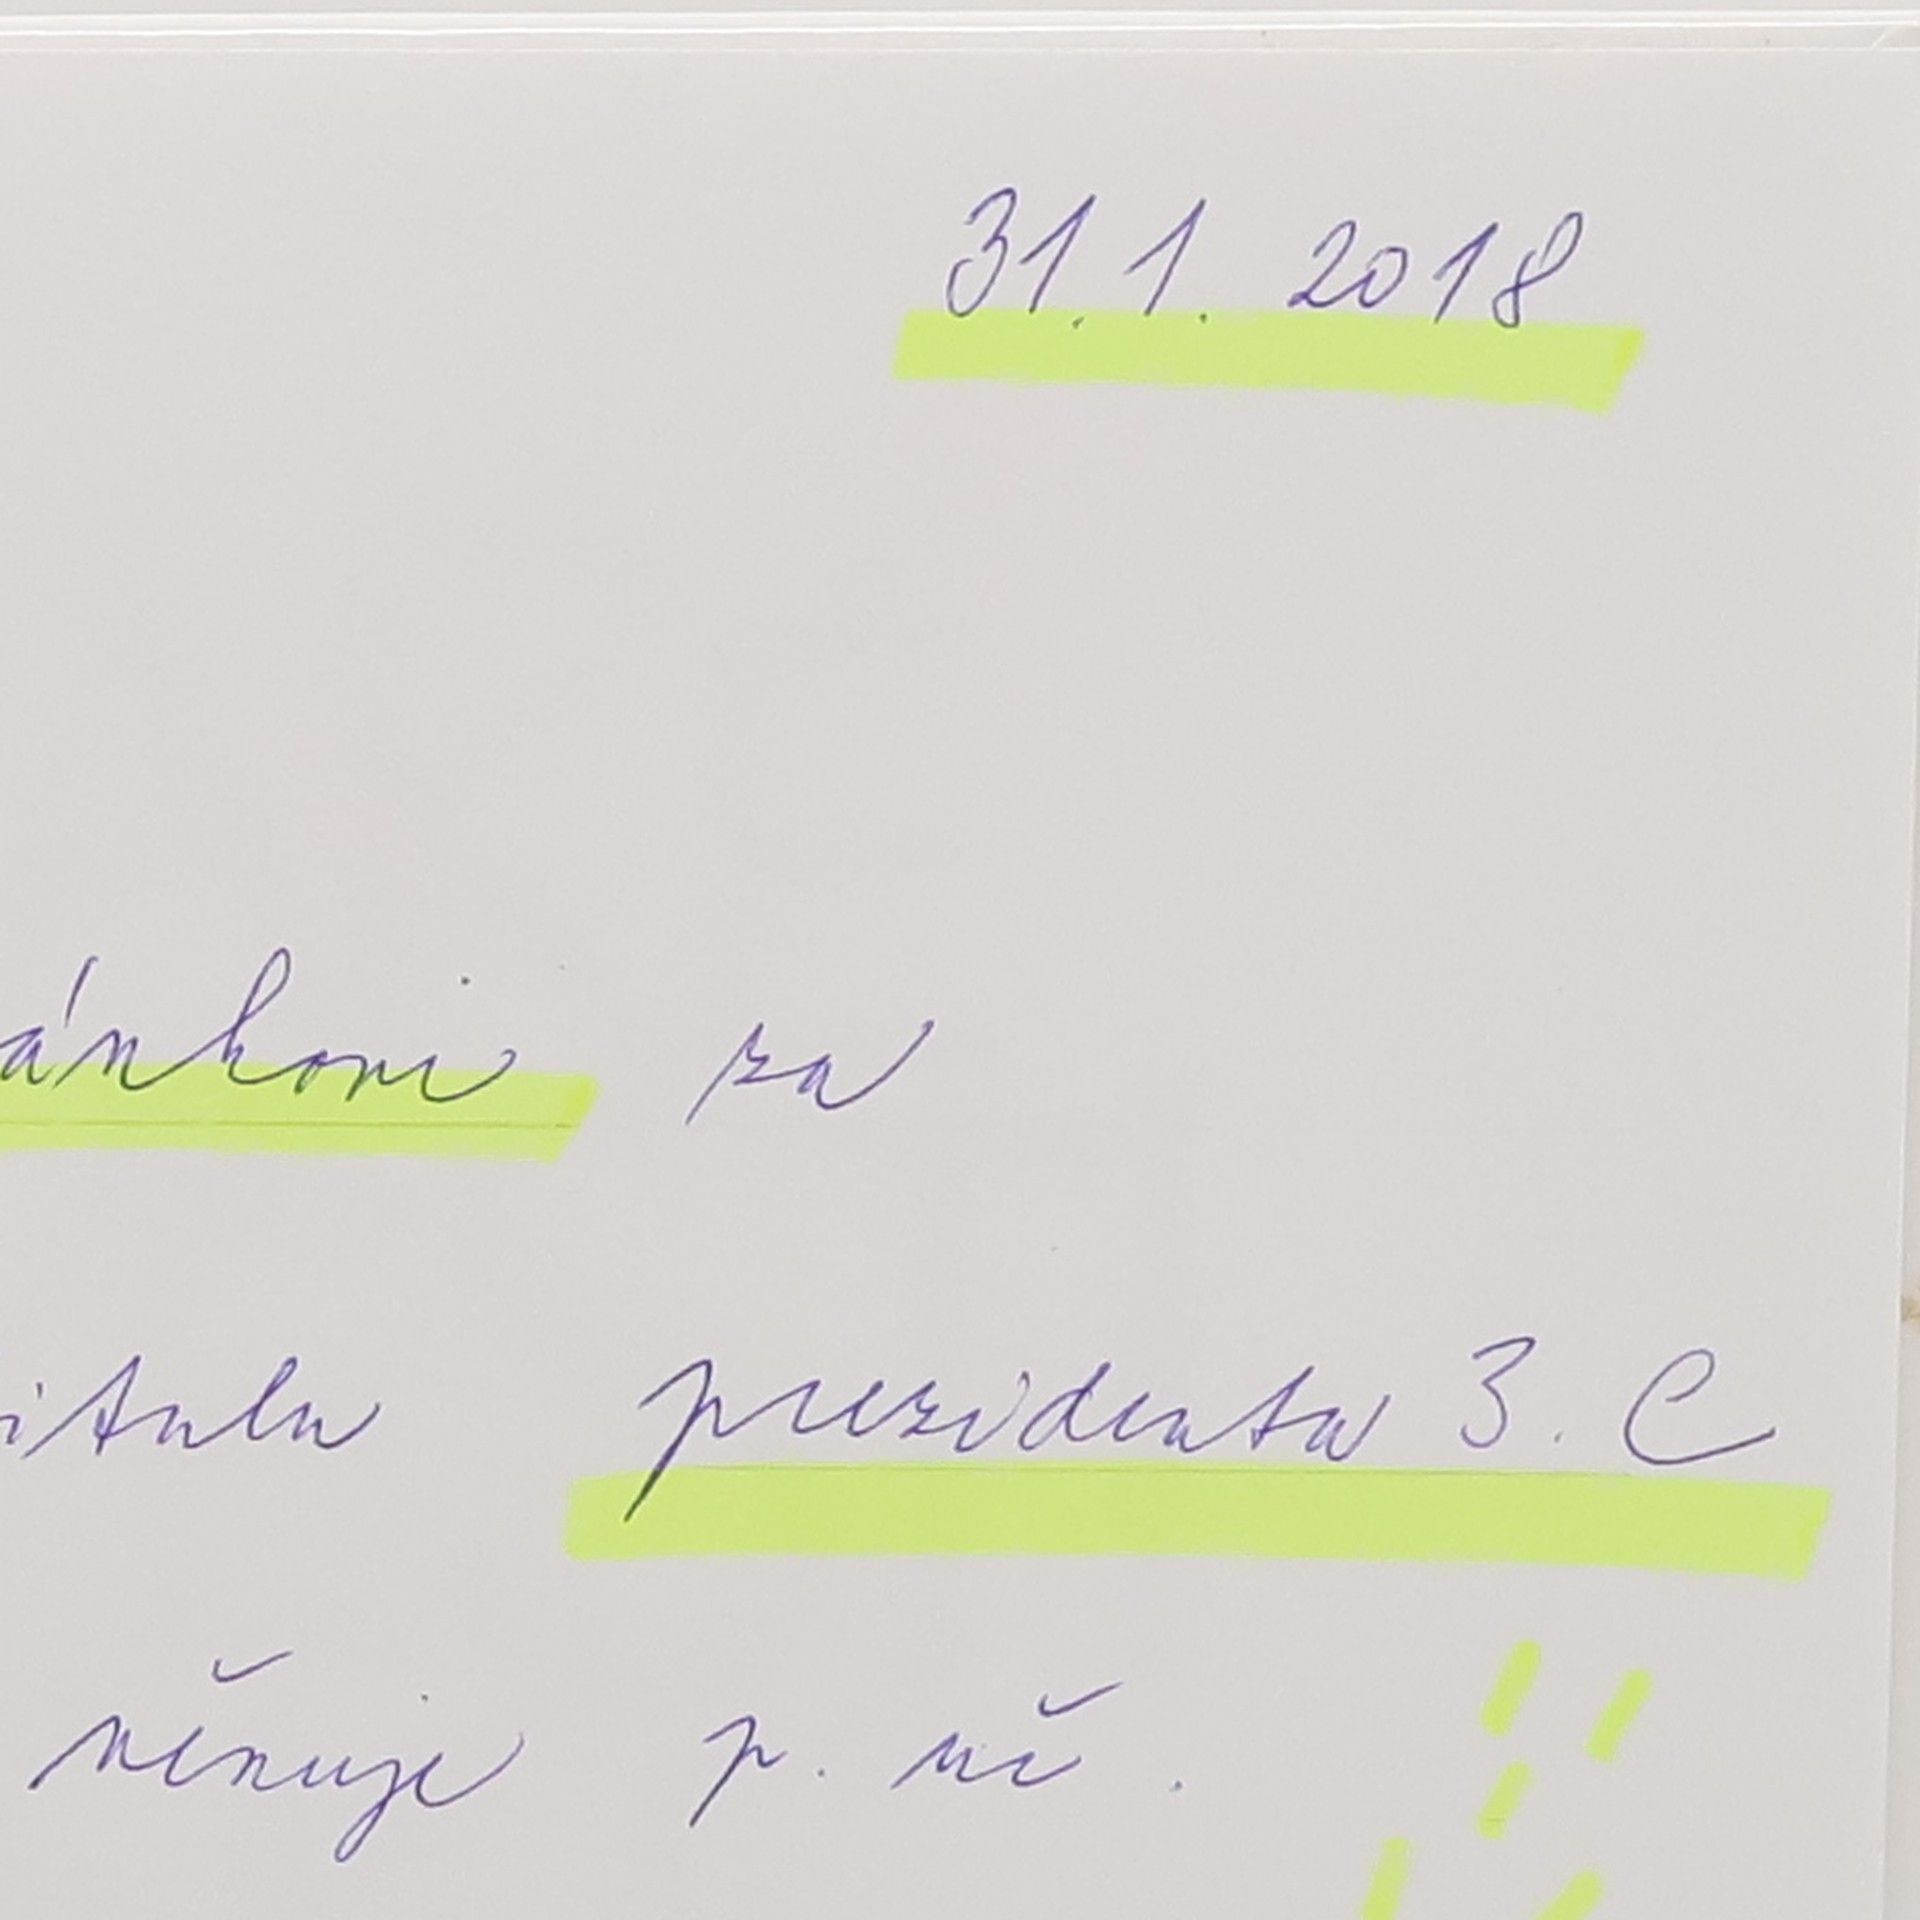 31. 1. 2018
ánkovi za
itulu prezidenta 3. C
věnuje p. uč.